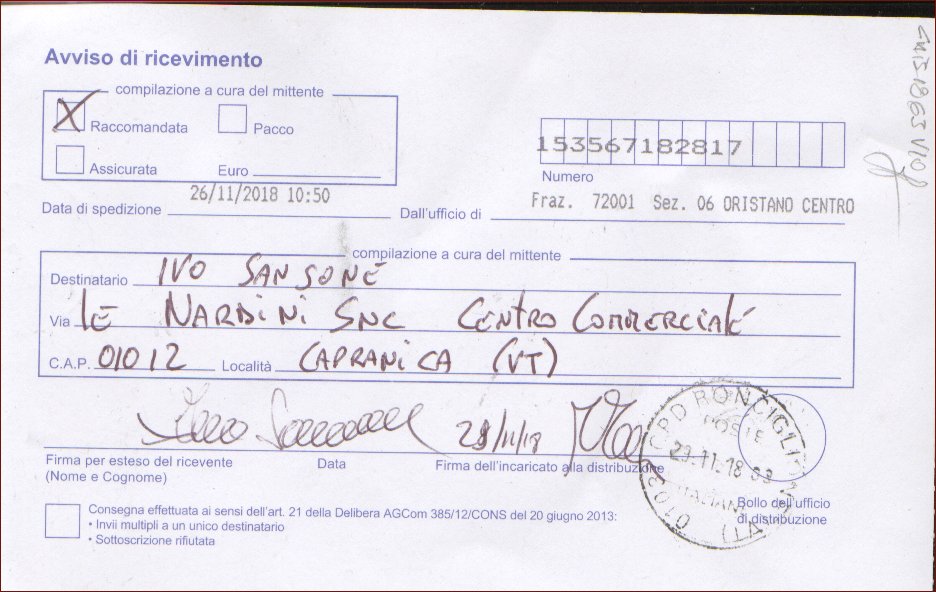 Avviso di ricevimento
compilazione a cura del mittente
X Raccomandata Pacco
Assicurata Euro
153567182817
Numero
26/11/2018 10:50
Data di spedizione
Dall'ufficio di Fraz. 72001 Sez. 06 ORISTANO CENTRO
compilazione a cura del mittente
Destinatario IVO SANSONE
Via LE NARDINI SNC CENTRO COMMERCIALE
C.A.P. 01012 Località CAPRANICA (VT)
28/11/18
Firma per esteso del ricevente
(Nome e Cognome)
Data
Firma dell'incaricato alla distribuzione
Bollo dell'ufficio
di distribuzione
POSTE
ITALIANE
(VT)
Consegna effettuata ai sensi dell'art. 21 della Delibera AGCom 385/12/CONS del 20 giugno 2013:
• Invii multipli a un unico destinatario
• Sottoscrizione rifiutata